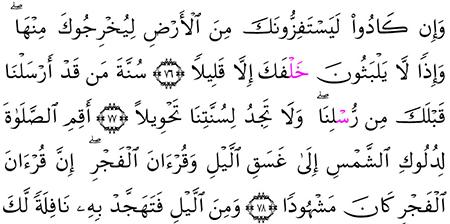 وَإِن كَادُواْ لَيَسْتَفِزُّونَكَ مِنَ ٱلْأَرْضِ لِيُخْرِجُوكَ مِنْهَاۖ
وَإِذًا لَّا يَلْبَثُونَ خَلْفَكَ إِلَّا قَلِيلًا ۝٧٦ سُنَّةَ مَن قَدْ أَرْسَلْنَا
قَبْلَكَ مِن رُّسْلِنَاۖ وَلَا تَجِدُ لِسُنَّتِنَا تَحْوِيلًا ۝٧٧ أَقِمِ ٱلصَّلَوٰةَ
لِدُلُوكِ ٱلشَّمْسِ إِلَىٰ غَسَقِ ٱللَّيْلِ وَقُرْءَانَ ٱلْفَجْرِۖ إِنَّ قُرْءَانَ
ٱلْفَجْرِ كَانَ مَشْهُودًا ۝٧٨ وَمِنَ ٱللَّيْلِ فَتَهَجَّدْ بِهِۦ نَافِلَةً لَّكَ